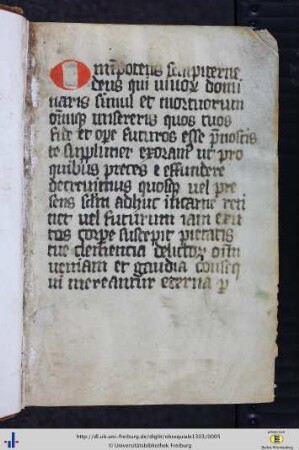 Omipotens sempiterne
deus qui vivor domi
naris simul et mortuorum
omniumque misereris quos tuos
fide et ope futuros esse pnoscis
te suppliciter exoramus ut pro
quibus preces effundere
decrevimus quosque vel pre
sens sclm adhuc in carne reti
net vel futurum iam exu
tos corpe suscepit pietatis
tue clemencia delictor oim
veniam et gaudia conseq
ui mereantur eterna p
http://dl.ub.uni-freiburg.de/diglit/
© Universitätsbibliothek Freiburg